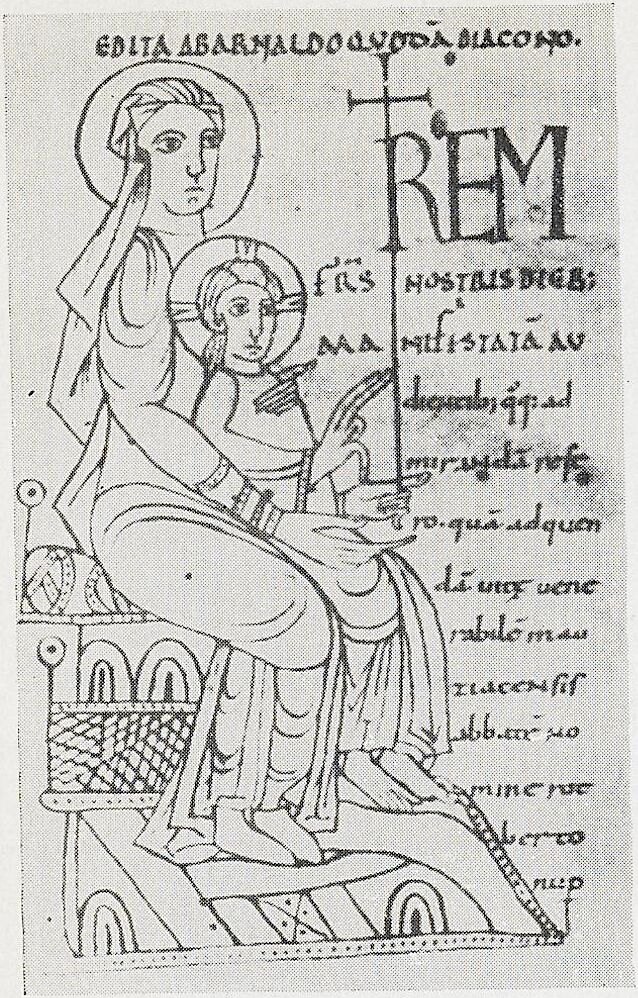 EDITA AB ARNALDO QUODĀ DIACONO.
REM
FR̄S NOSTRIS DIEB;
MANIFESTATĀ AU
dientib; q̄q; ad
mirandā refe
ro. quā ad quen
dā
rabilē mau
ziacensis
abbatē no
mine rot
berto
nup